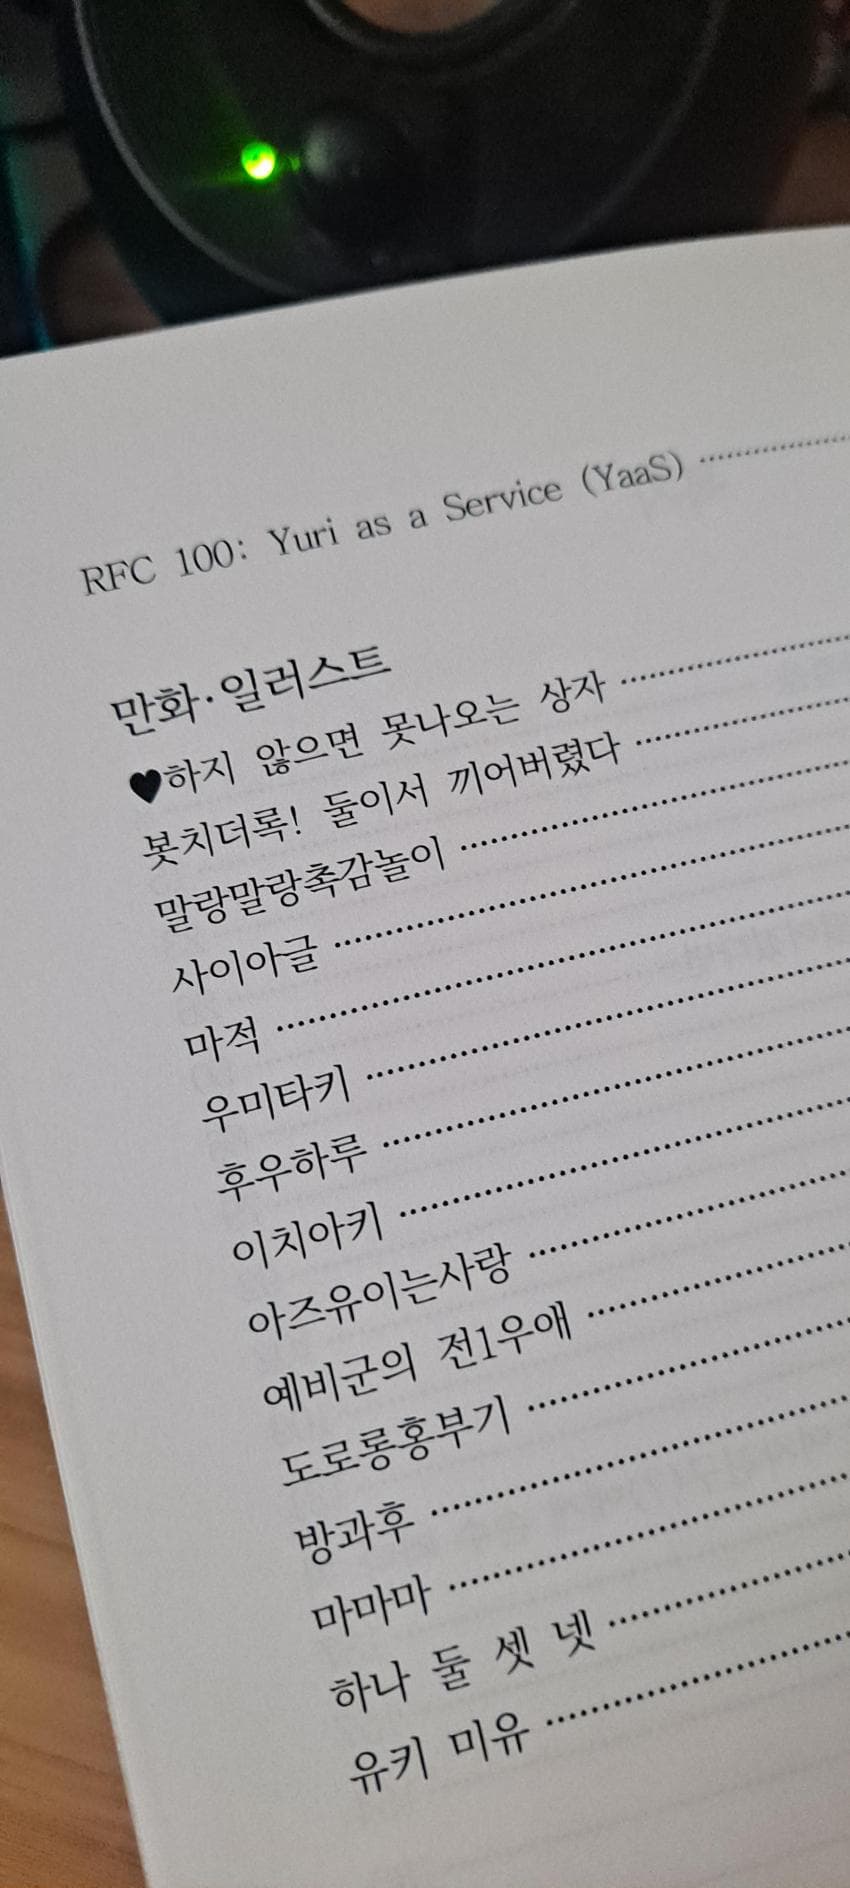 RFC 100: Yuri as a Service (YaaS)
만화·일러스트
♥하지 않으면 못나오는 상자
봇치더록! 둘이서 끼어버렸다
말랑말랑촉감놀이
사이아글
마적
우미타키
후우하루
이치아키
아즈유이는사랑
예비군의 전1우애
도로롱홍부기
방과후
마마마
하나 둘 셋 넷
유키 미유